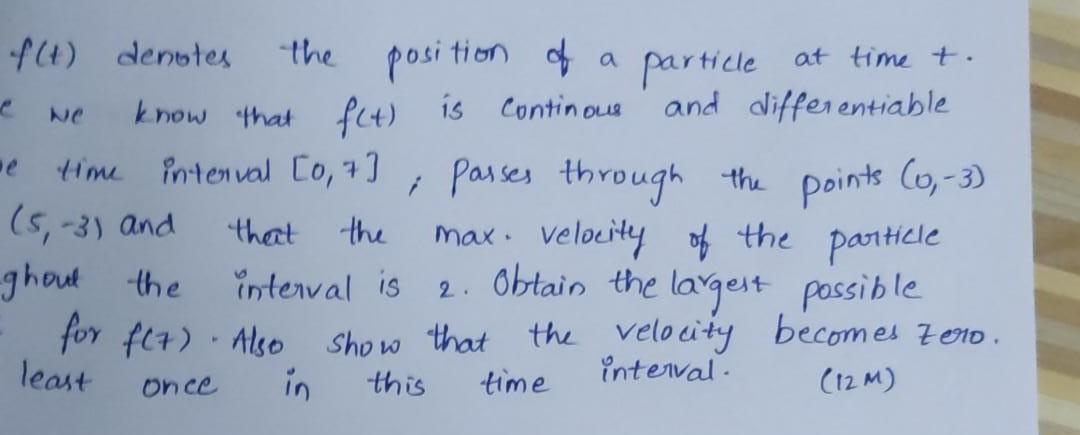 f(t) denotes the position of a particle at time t.
we know that f(t) is Continous and differentiable
time interval [0,7] , passes through the points (0,-3)
(5,-3) and that the max. velocity of the particle
ghout the interval is 2. Obtain the largest possible
for f(7). Also show that the velocity becomes zero.
least once in this time interval. (12M)